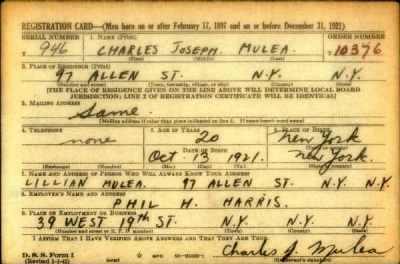 REGISTRATION CARD—(Men born on or after February 17, 1897 and on or before December 31, 1921)
SERIAL NUMBER 1. NAME (Print) ORDER NUMBER
V 946 CHARLES JOSEPH. MULEA. V 10376
(First) (Middle) (Last)
2. PLACE OF RESIDENCE (Print)
97 ALLEN ST. N.Y. N.Y.
(Number and street) (Town, township, village, or city) (County) (State)
[THE PLACE OF RESIDENCE GIVEN ON THE LINE ABOVE WILL DETERMINE LOCAL BOARD
JURISDICTION; LINE 2 OF REGISTRATION CERTIFICATE WILL BE IDENTICAL]
3. MAILING ADDRESS
Same.
[Mailing address if other than place indicated on line 2. If same insert word same]
4. TELEPHONE 5. AGE IN YEARS 6. PLACE OF BIRTH
none 20 New York
DATE OF BIRTH
Oct 13 1921. New York.
(Exchange) (Number) (Mo.) (Day) (Yr.) (State or country)
7. NAME AND ADDRESS OF PERSON WHO WILL ALWAYS KNOW YOUR ADDRESS
LILLIAN MULEA. 97 ALLEN ST. N.Y. N.Y.
8. EMPLOYER'S NAME AND ADDRESS
PHIL H. HARRIS.
9. PLACE OF EMPLOYMENT OR BUSINESS
39 WEST 19th ST. N.Y. N.Y. N.Y.
(Number and street or R. F. D. number) (Town) (County) (State)
I AFFIRM THAT I HAVE VERIFIED ABOVE ANSWERS AND THAT THEY ARE TRUE.
D. S. S. Form 1
(Revised 1-1-42) (over) Charles J. Mulea